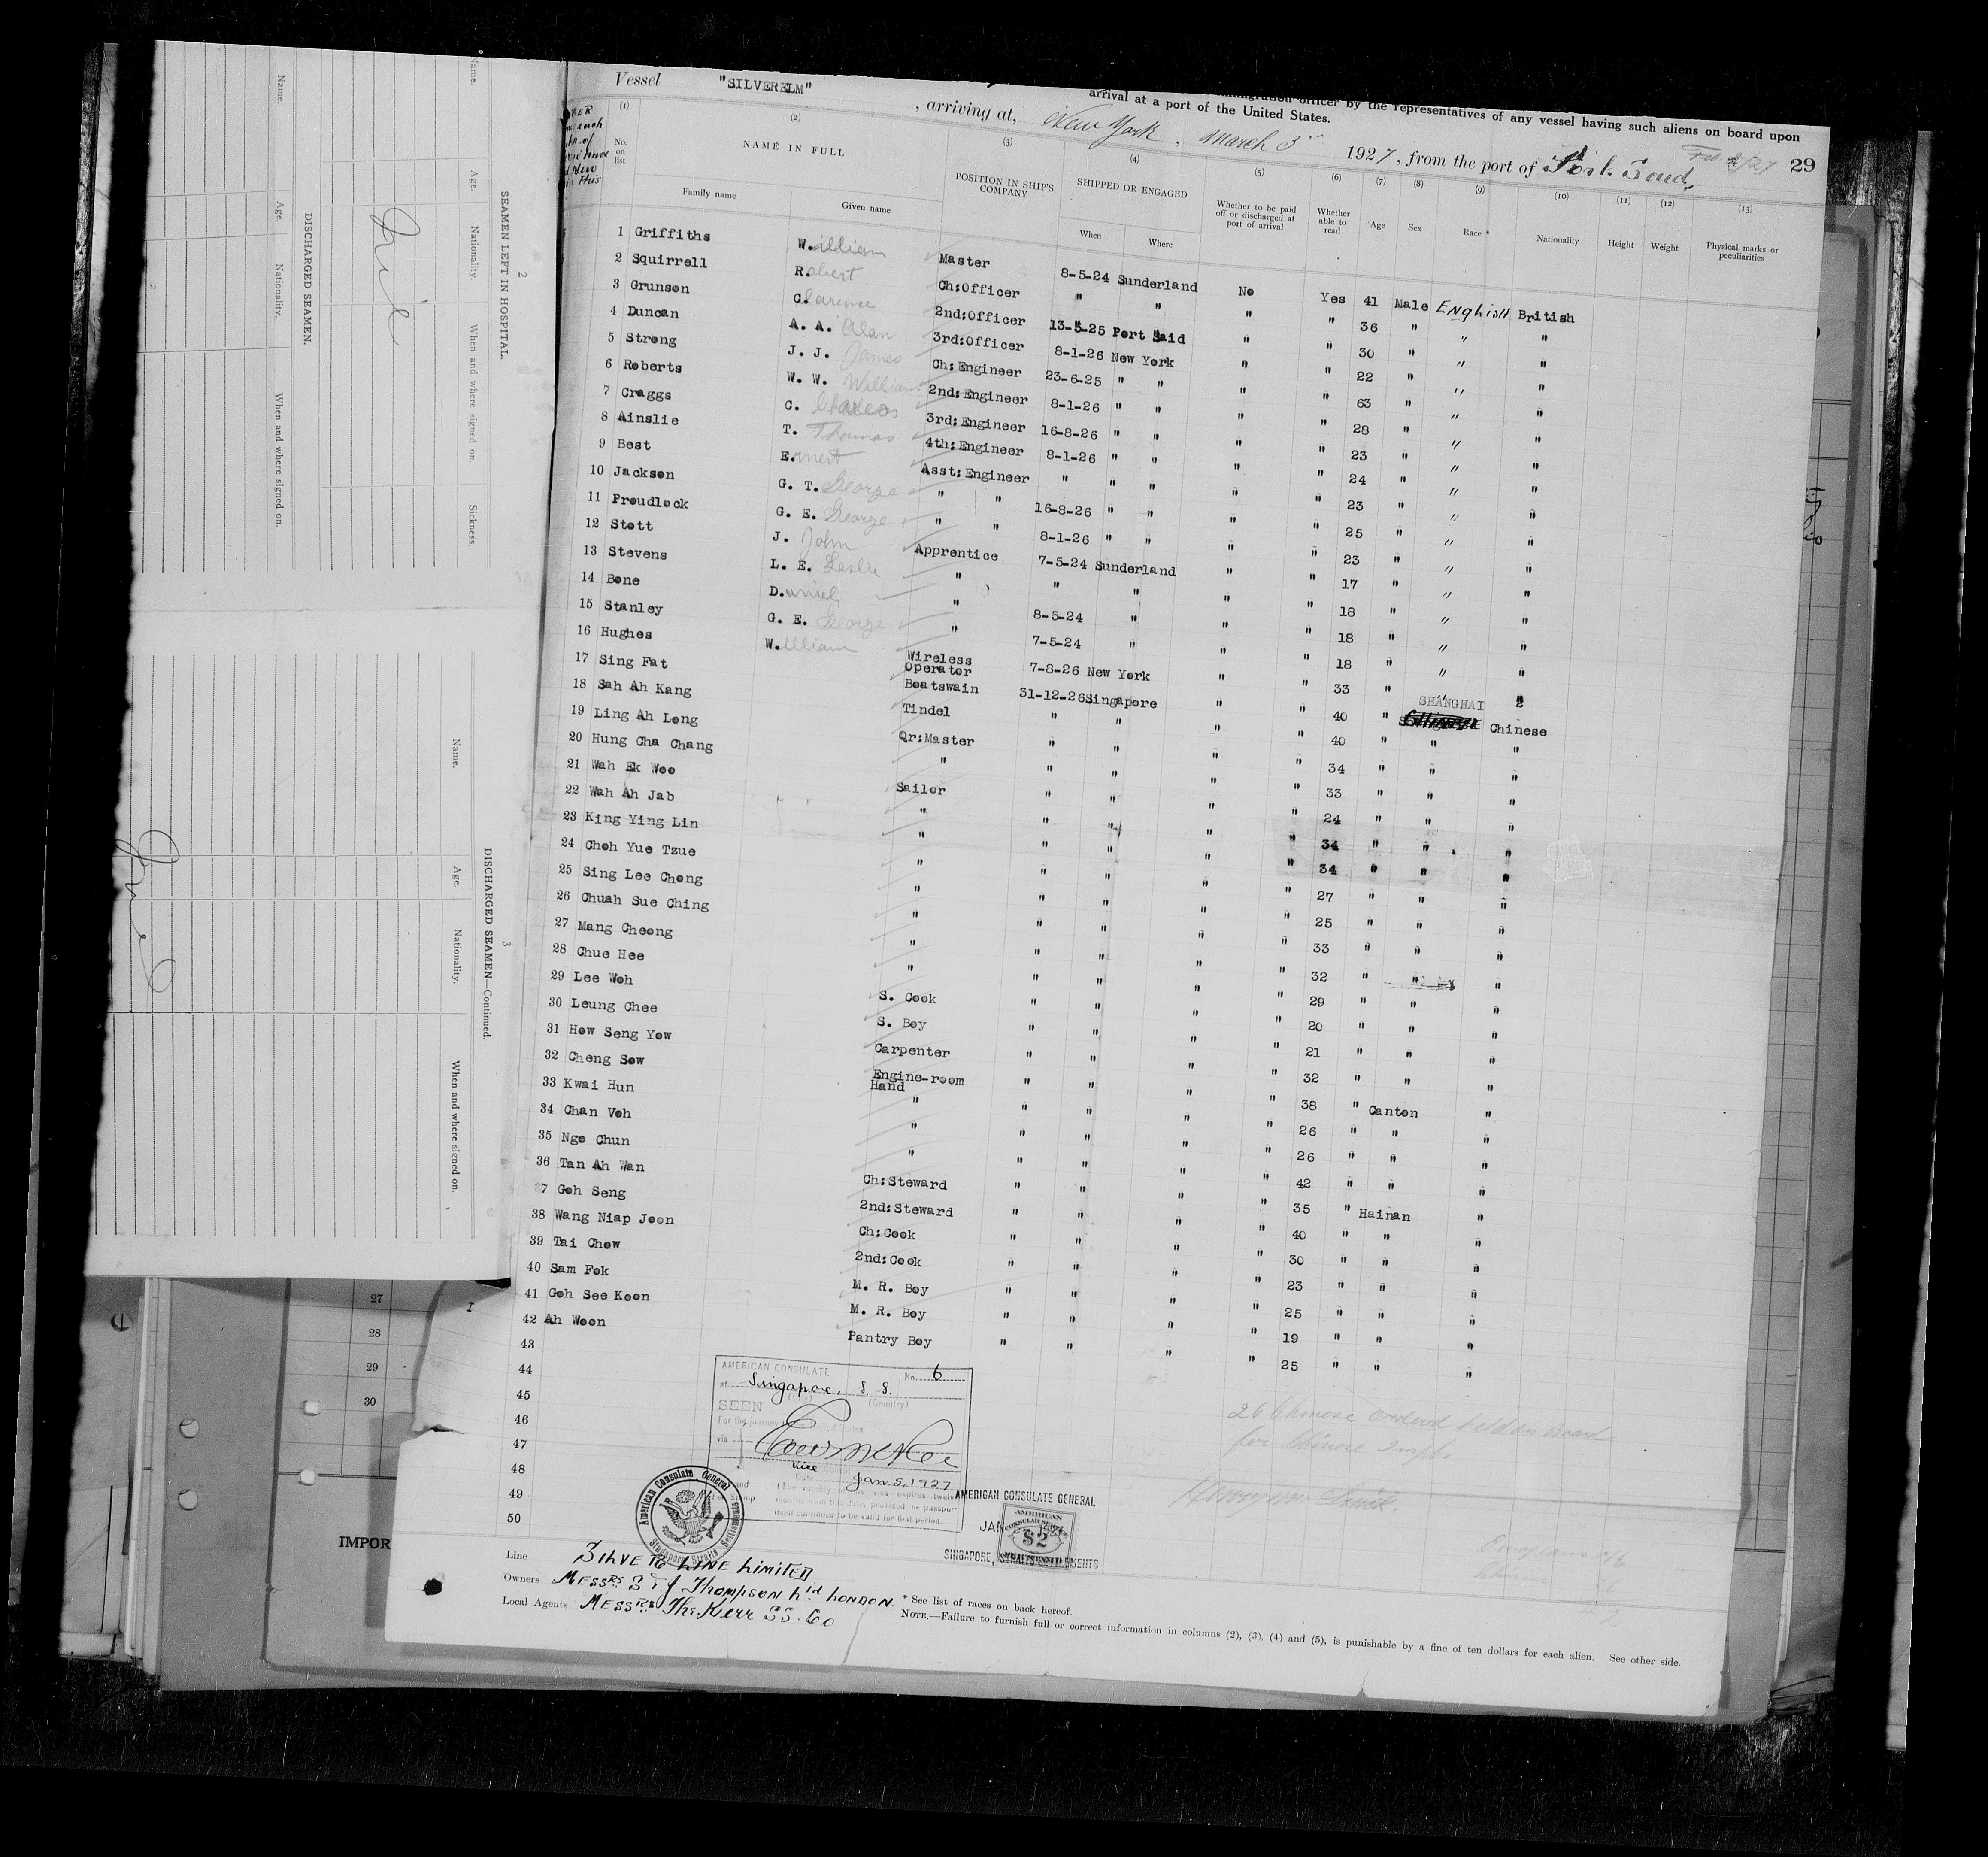 Vessel "SILVERELM"
, arriving at, New York, March 3rd 1927, from the port of Port Said,
immigration officer by the representatives of any vessel having such aliens on board upon
arrival at a port of the United States.
29
(1) (2) (3) (4) (5) (6) (7) (8) (9) (10) (11) (12) (13)
No. on list
NAME IN FULL
Family name Given name
POSITION IN SHIP'S COMPANY
SHIPPED OR ENGAGED
When Where
Whether to be paid off or discharged at port of arrival
Whether able to read
Age Sex Race * Nationality Height Weight Physical marks or peculiarities
1 Griffiths William Master 8-5-24 Sunderland No Yes 41 Male English British
2 Squirrell Robert Ch:Officer " " " " 36 " " "
3 Grunson Clarence 2nd:Officer 13-5-25 Port Said " " 30 " " "
4 Duncan A. A. Alan 3rd:Officer 8-1-26 New York " " 22 " " "
5 Strong J. J. James Ch:Engineer 23-6-25 " " " " 63 " " "
6 Roberts W. W. William 2nd:Engineer 8-1-26 " " " " 28 " " "
7 Craggs C. Charles 3rd:Engineer 16-8-26 " " " " 23 " " "
8 Ainslie T. Thomas 4th:Engineer 8-1-26 " " " " 24 " " "
9 Best Ernest Asst:Engineer " " " " " 23 " " "
10 Jackson G. T. George " " 16-8-26 " " " " 25 " " "
11 Proudlock G. E. George " " 8-1-26 " " " " 23 " " "
12 Stott J. John Apprentice 7-5-24 Sunderland " " 17 " " "
13 Stevens L. E. Leslie " " " " " 18 " " "
14 Bone Daniel " 8-5-24 " " " 18 " " "
15 Stanley G. E. George " 7-5-24 " " " 18 " " "
16 Hughes William Wireless Operator 7-8-26 New York " " 33 " " "
17 Sing Fat Boatswain 31-12-26 Singapore " " 40 " SHANGHAI Chinese
18 Sah Ah Kang Tindel " " " " 40 " " "
19 Ling Ah Long Qr:Master " " " " 34 " " "
20 Hung Cha Chang " " " " " 33 " " "
21 Wah Ek Woo Sailor " " " " 24 " " "
22 Wah Ah Jab " " " " " 34 " " "
23 King Ying Lin " " " " " 34 " " "
24 Choh Yue Tzue " " " " " 27 " " "
25 Sing Lee Chong " " " " " 25 " " "
26 Chuah Sue Ching " " " " " 33 " " "
27 Mang Cheong " " " " " 32 " " "
28 Chue Hee " " " " " 29 " " "
29 Lee Woh S. Cook " " " " 20 " " "
30 Leung Chee S. Boy " " " " 21 " " "
31 How Seng Yow Carpenter " " " " 32 " " "
32 Cheng Sow Engine-room Hand " " " " 38 " Canton "
33 Kwai Hun " " " " " 26 " " "
34 Chan Voh " " " " " 26 " " "
35 Ngo Chun " " " " " 42 " " "
36 Tan Ah Wan Ch:Steward " " " " 35 " Hainan "
37 Goh Seng 2nd:Steward " " " " 40 " " "
38 Wang Niap Joon Ch:Cook " " " " 30 " " "
39 Tai Chow 2nd:Cook " " " " 23 " " "
40 Sam Fok M. R. Boy " " " " 25 " " "
41 Goh See Koon M. R. Boy " " " " 19 " " "
42 Ah Woon Pantry Boy " " " " 25 " " "
43
44
45
46
47
48
49
50
AMERICAN CONSULATE No. 6
at Singapore, S. S.
(Country)
SEEN
via
Vice
Date Jan. 5, 1927
American Consulate General
Singapore Straits Settlements
AMERICAN CONSULATE GENERAL
JAN
AMERICAN CONSULAR SERVICE
$2
SINGAPORE, STRAITS SETTLEMENTS
26 Chinese ordered held on board
for Chinese Insp.
Line SILVER LINE LIMITED
Owners MESSRS S & J Thompson Ltd LONDON.
Local Agents MESSRS The Kerr SS. Co
* See list of races on back hereof.
NOTE.—Failure to furnish full or correct information in columns (2), (3), (4) and (5), is punishable by a fine of ten dollars for each alien. See other side.
2
SEAMEN LEFT IN HOSPITAL.
Name. Age. Nationality. When and where signed on. Sickness.
DISCHARGED SEAMEN.
Name. Age. Nationality. When and where signed on.
3
DISCHARGED SEAMEN—Continued.
Name. Age. Nationality. When and where signed on.
27
28
29
30
IMPOR